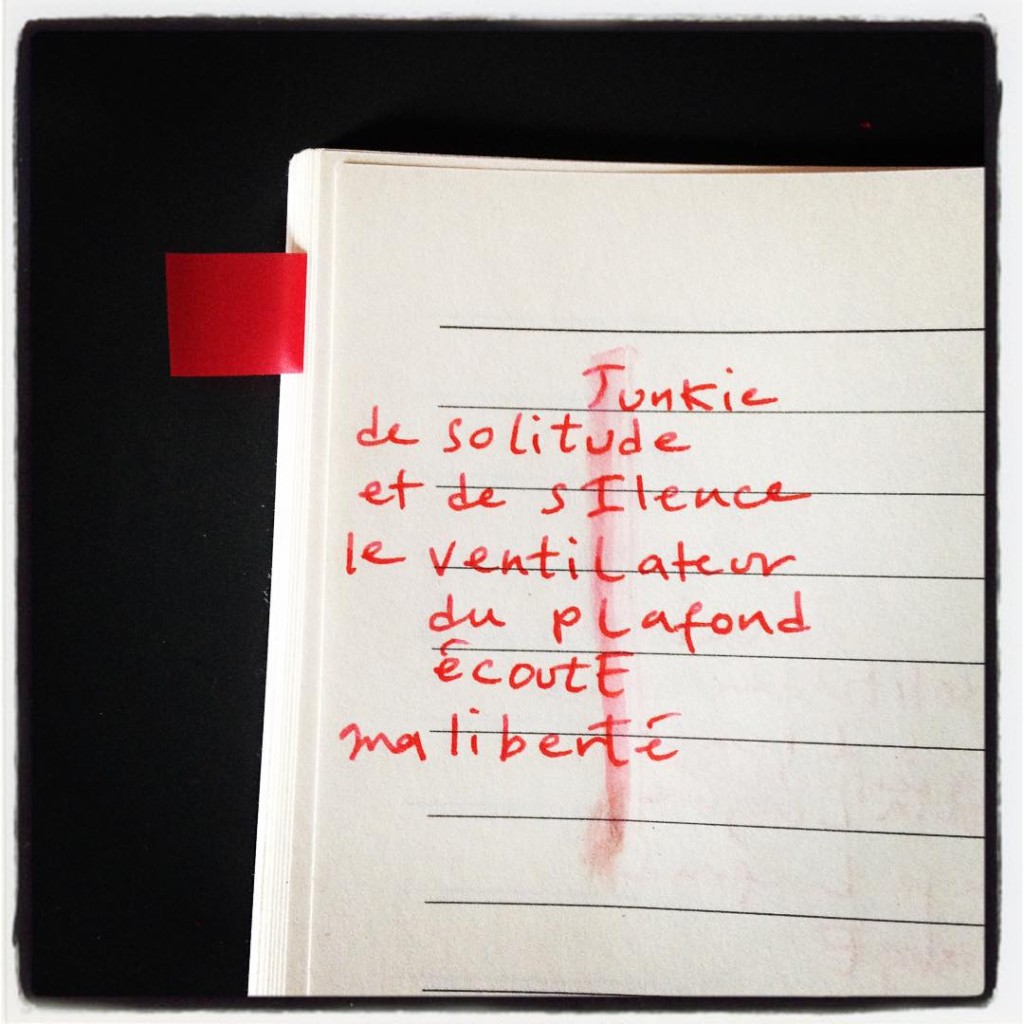 Junkie
de solitude
et de sIlence
le ventiLateur
du pLafond
écoutE
ma liberté